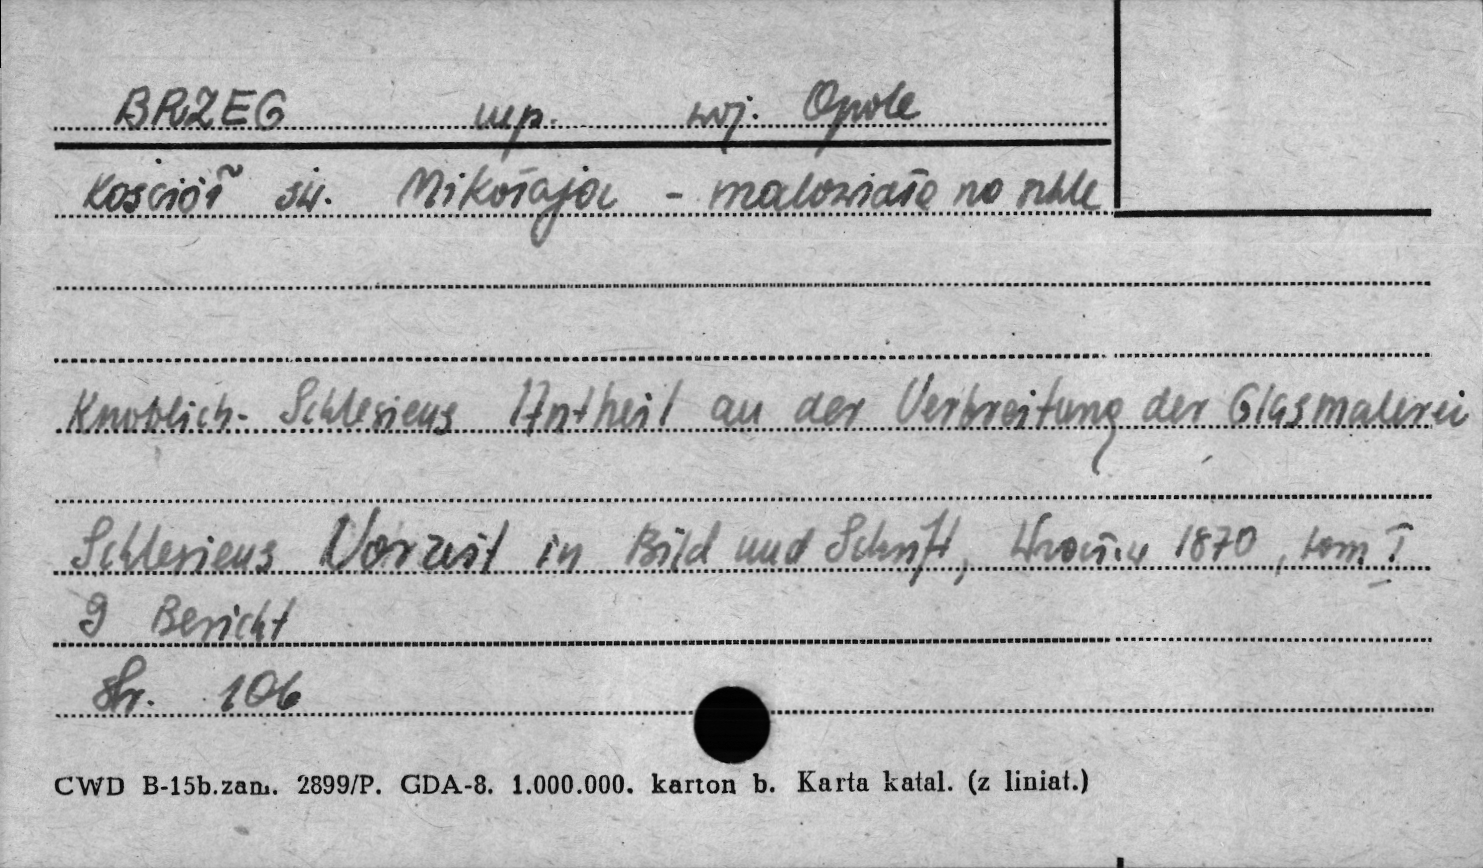 BRZEG mp. woj. Opole
Kościół św. Mikołaja - malowidła na szkle
Knoblich - Schlesiens Antheil an der Verbreitung der Glasmalerei
Schlesiens Vorzeit in Bild und Schrift, Wrocław 1870, tom I
9 Bericht
str. 106
CWD B-15b.zam. 2899/P. GDA-8. 1.000.000. karton b. Karta katal. (z liniat.)